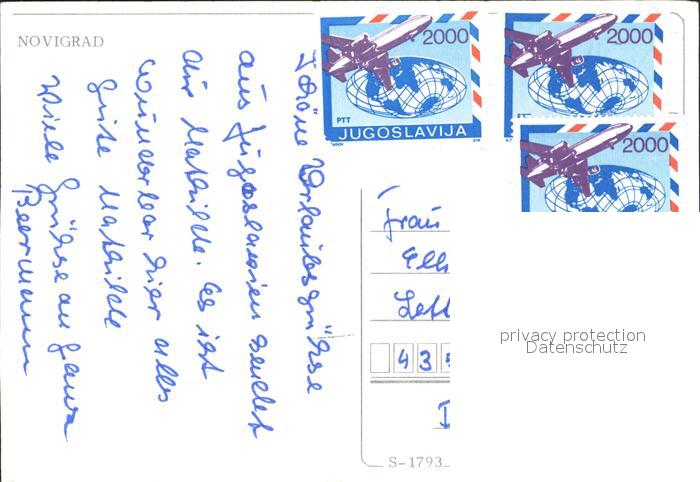 NOVIGRAD
2000
PTT
JUGOSLAVIJA
2000
2000
Schöne Urlaubsgrüße
aus Jugoslawien sendet
dir Mathilde. Es ist
wunderbar hier alles
gute Mathilde
Viele Grüße an
Beermann
Frau
Elli
435
privacy protection
Datenschutz
S-1793